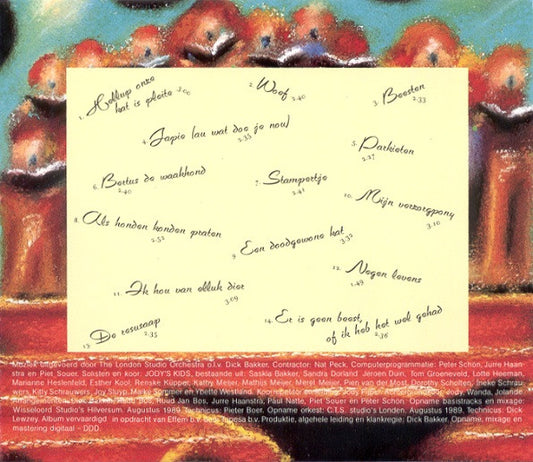 1. Hellup onze
kat is pleite 3.00
2. Woef 2.40
3. Beesten 2.33
4. Japie (au wat doe je nou) 2.35
5. Parkieten 2.37
6. Bertus de waakhond 2.40
7. Stampertje 2.41
8. Als honden konden praten 2.52
9. Een doodgewone kat 3.32
10. Mijn verzorgpony 3.10
11. Ik hou van elluk dier 3.09
12. Negen levens 1.49
13. De resusaap 2.35
14. Er is geen beest,
of ik heb het wel gehad 2.36
Muziek uitgevoerd door The London Studio Orchestra o.l.v. Dick Bakker. Contractor: Nat Peck. Computerprogrammatie: Peter Schön, Jurre Haan-
stra en Piet Souer. Solisten en koor: JODY'S KIDS, bestaande uit: Saskia Bakker, Sandra Dorland, Jeroen Duin, Tom Groeneveld, Lotte Heerman,
Marianne Hestenfeld, Esther Kool, Renske Küpper, Kathy Meijer, Mathijs Meijer, Mergt Meijer, Pien van der Most, Dorothy Scholten, Ineke Schrau-
wers, Kitty Schrauwers, Joy Sluyp, Maike Sommer en Yvette Westland. Jody, Wanda, Jolande.
Ruud Jan Bos, Jurre Haanstra, Paul Natte, Piet Souer en Peter Schön. Opname basistracks en mixage:
Wisseloord Studio's Hilversum. Augustus 1989. Technicus: Pieter Boer. Opname orkest: C.T.S. studio's Londen. Augustus 1989. Technicus: Dick
Lewzey. Album vervaardigd in opdracht van Effem b.v. b.v. Produktie, algehele leiding en klankregie: Dick Bakker. Opname, mixage en
mastering digitaal - DDD.